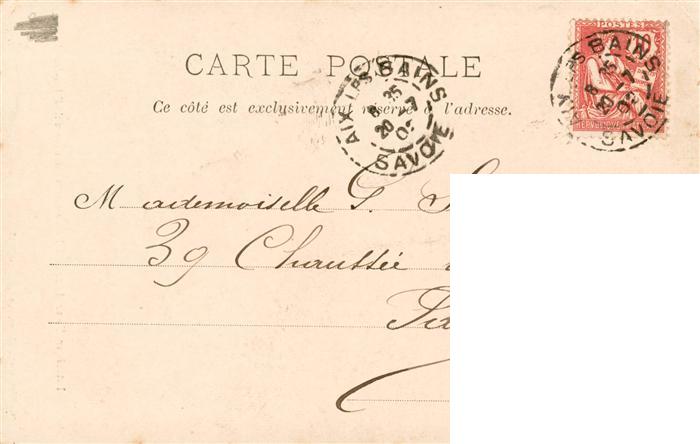 CARTE POSTALE
Ce côté est exclusivement réservé à l'adresse.
AIX LES BAINS
8 25
20 -7
02
SAVOIE
POSTES
10
BAINS
SAVOIE
Mademoiselle G.
39 Chaussée